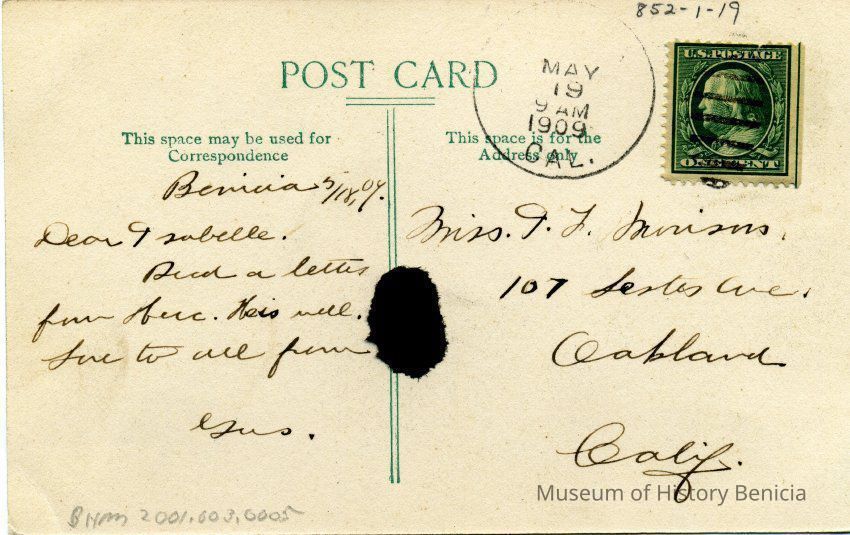 852-1-19
POST CARD
MAY
19
9 AM
1909
CAL.
U.S. POSTAGE
ONE CENT
This space may be used for
Correspondence
This space is for the
Address only
Benicia 5/18, 09.
Dear Isabelle.
Recd a letter
from Herc. He is well.
Love to all from
Gus.
Miss. I. F. Morison,
107 Lester Ave.
Oakland
Calif.
Museum of History Benicia
BHM 2001.003.0005